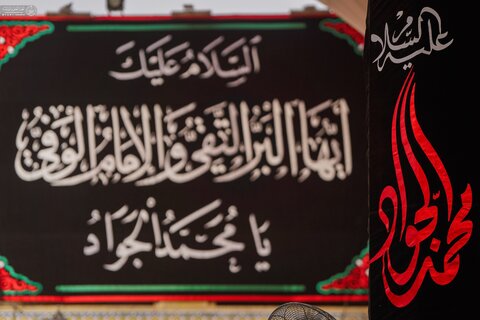 السلام عليك
أيها البر التقي والإمام الوفي
يا محمد الجواد
عليه السلام
محمد الجواد